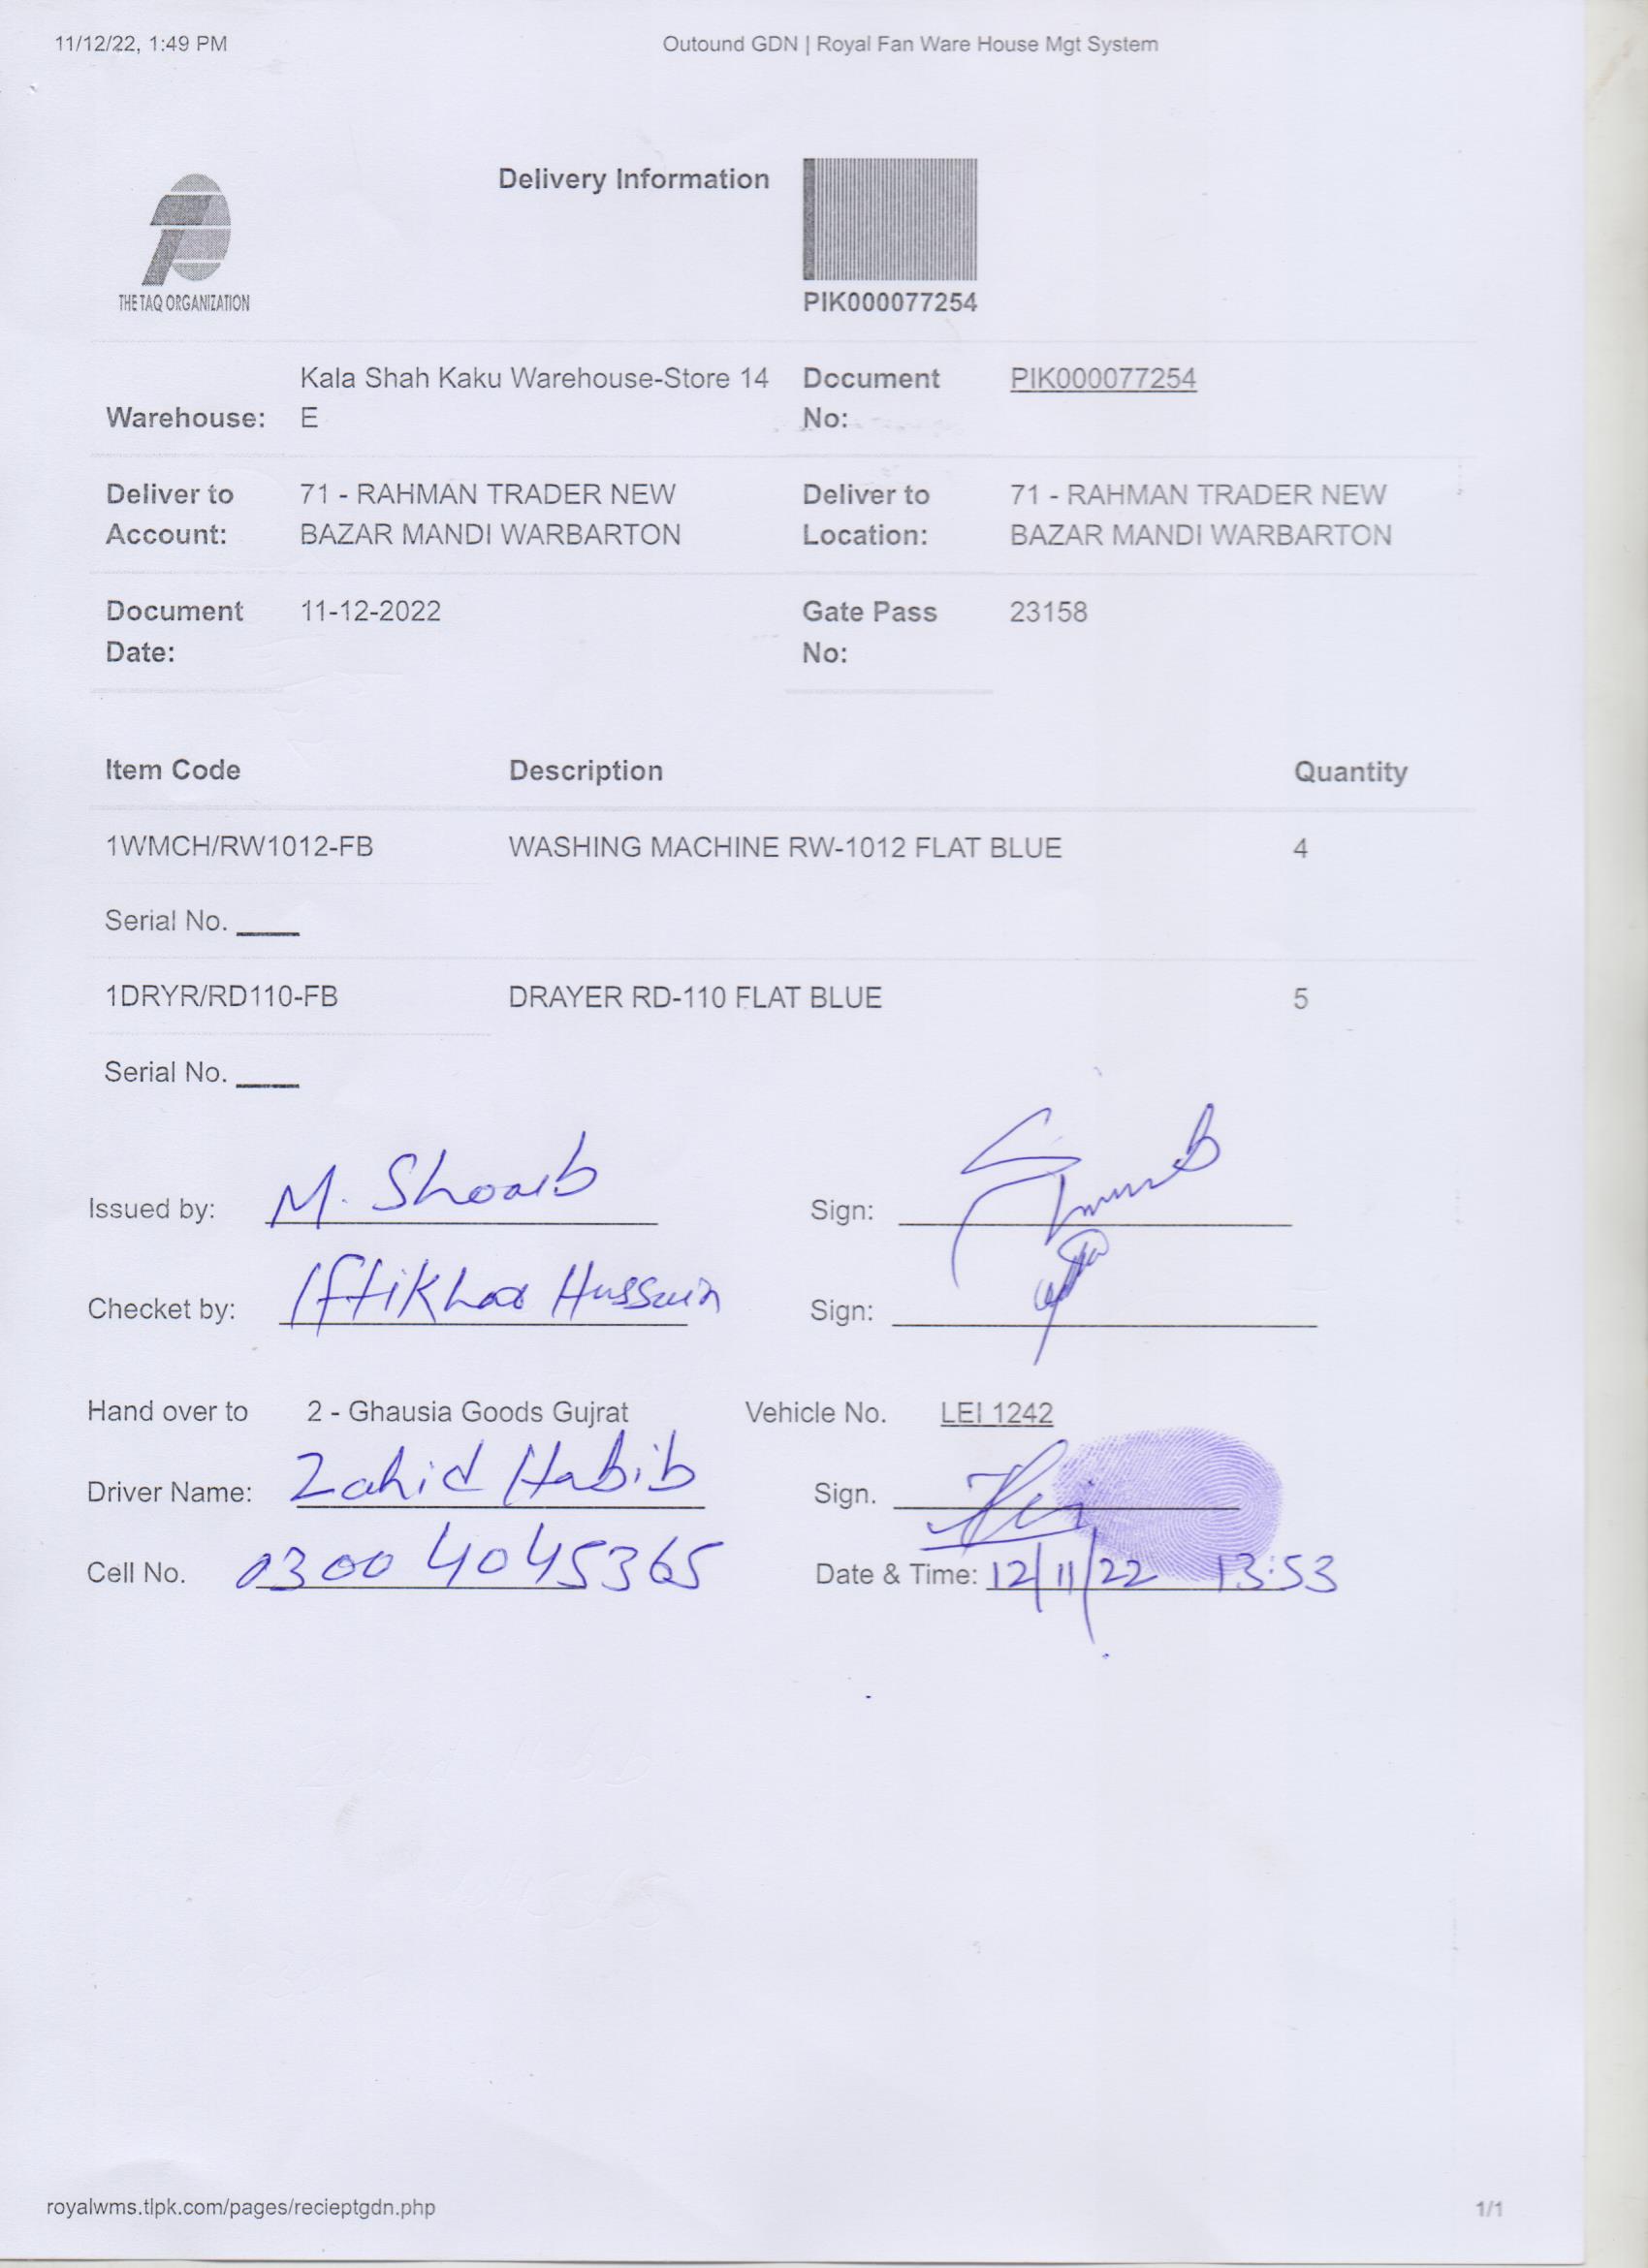 11/12/22, 1:49 PM Outound GDN | Royal Fan Ware House Mgt System
Delivery Information
THE TAQ ORGANIZATION
PIK000077254
Kala Shah Kaku Warehouse-Store 14 Document PIK000077254
Warehouse: E No:
Deliver to 71 - RAHMAN TRADER NEW Deliver to 71 - RAHMAN TRADER NEW
Account: BAZAR MANDI WARBARTON Location: BAZAR MANDI WARBARTON
Document 11-12-2022 Gate Pass 23158
Date: No:
Item Code Description Quantity
1WMCH/RW1012-FB WASHING MACHINE RW-1012 FLAT BLUE 4
Serial No.
1DRYR/RD110-FB DRAYER RD-110 FLAT BLUE 5
Serial No.
Issued by: M. Shoaib Sign:
Checket by: Iftikhar Hussain Sign:
Hand over to 2 - Ghausia Goods Gujrat Vehicle No. LEI 1242
Driver Name: Zahid Habib Sign.
Cell No. 0300 4045365 Date & Time: 12/11/22 13:53
royalwms.tlpk.com/pages/recieptgdn.php 1/1